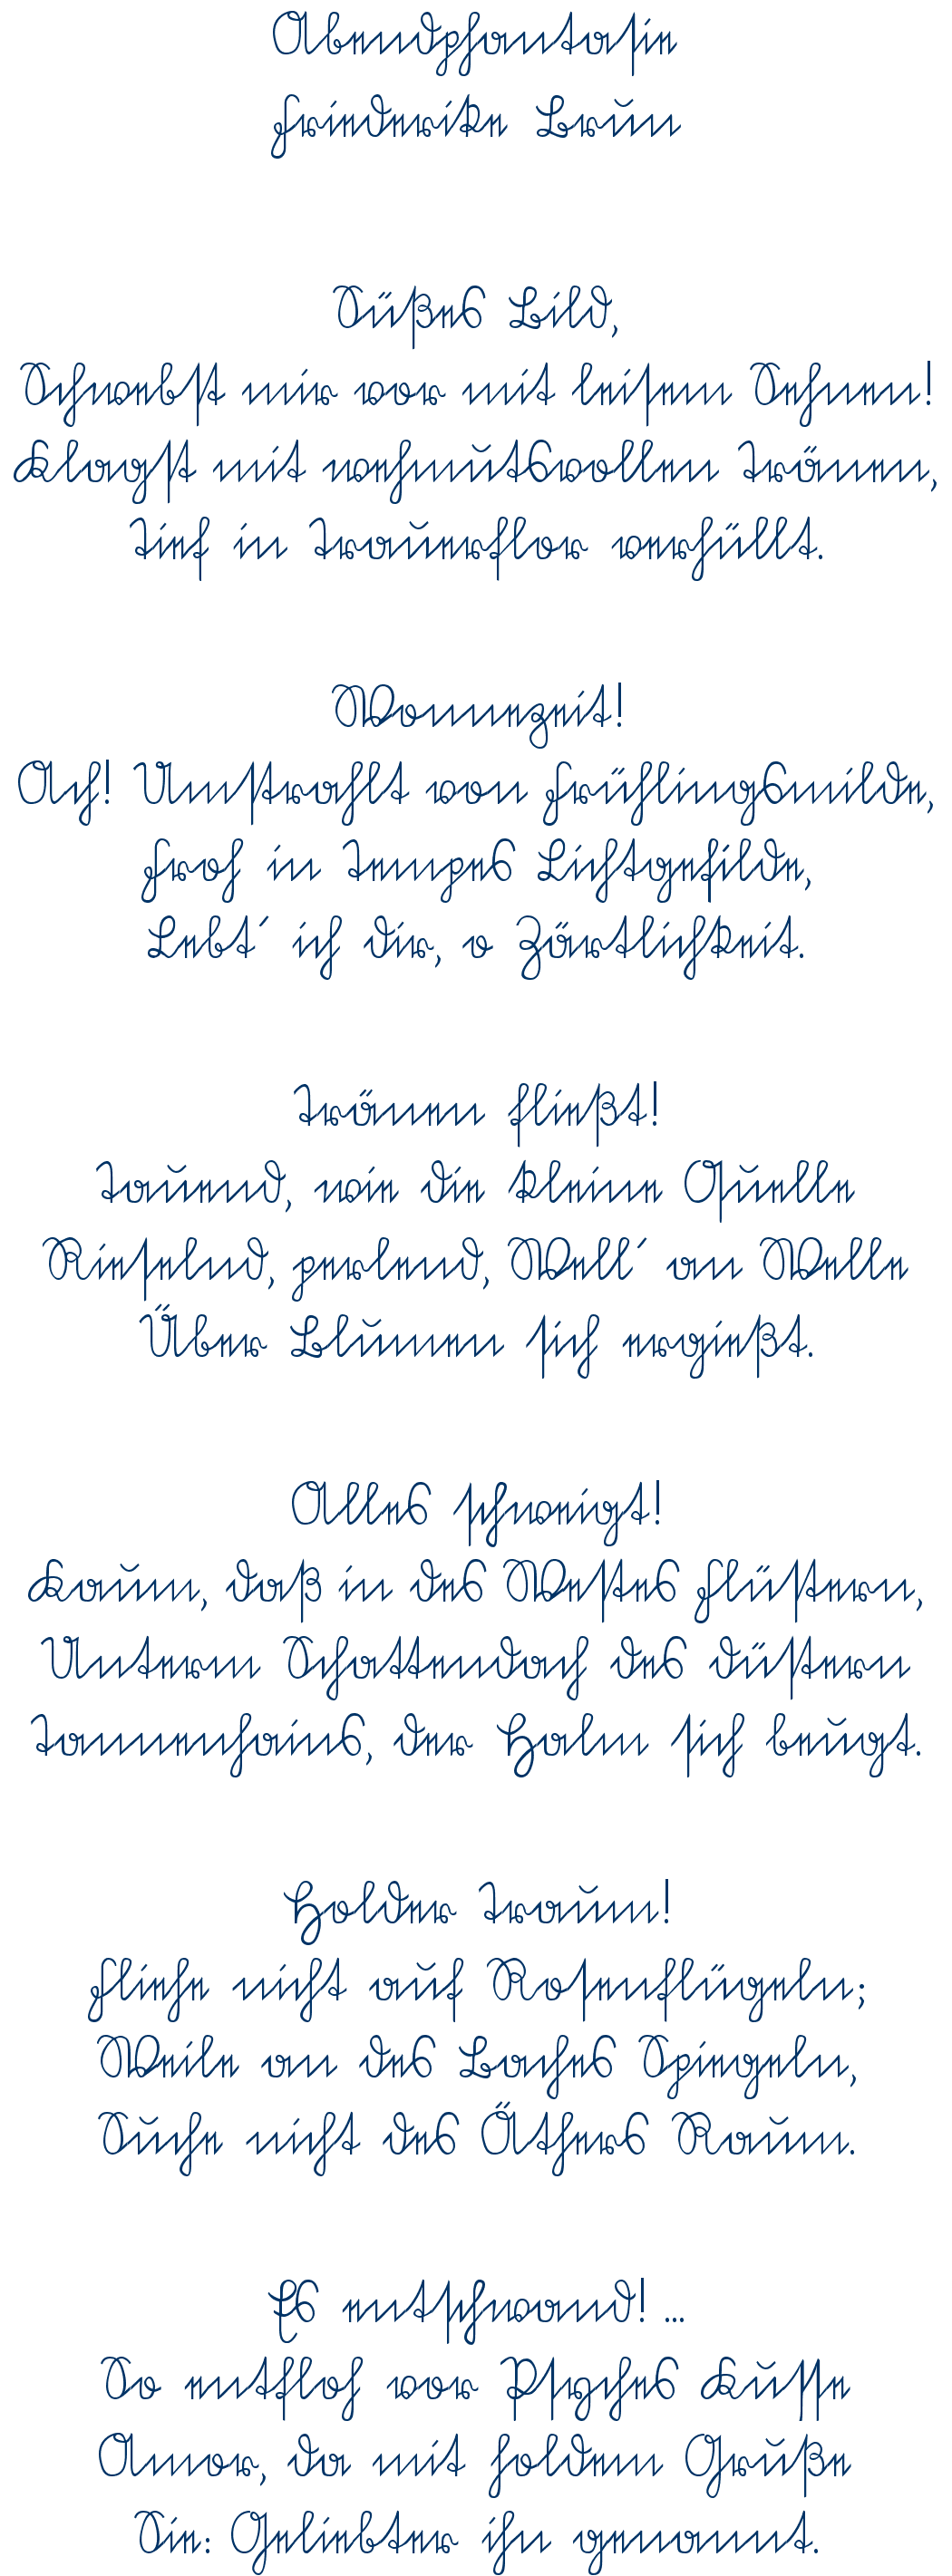 Abendphantasie
Friederike Brun
Süßes Bild,
Schwebst mir vor mit leisem Sehnen!
Klagst mit wehmutsvollen Tränen,
Tief in Trauerflor verhüllt.
Wonnezeit!
Ach! Umstrahlt von Frühlingsmilde,
Froh in Tempes Lichtgefilde,
Lebt´ ich dir, o Zärtlichkeit.
Tränen fließt!
Tauend, wie die kleine Quelle
Rieselnd, perlend, Well´ an Welle
Über Blumen sich ergießt.
Alles schweigt!
Kaum, daß in des Westes Flüstern,
Unterm Schattendach des düstern
Tannenhains, der Halm sich beugt.
Holder Traum!
Fliehe nicht auf Rosenflügeln;
Weile an des Baches Spiegeln,
Suche nicht des Äthers Raum.
Es entschwand! ...
So entfloh vor Psyches Kusse
Amor, da mit holdem Gruße
Sie: Geliebter ihn genannt.